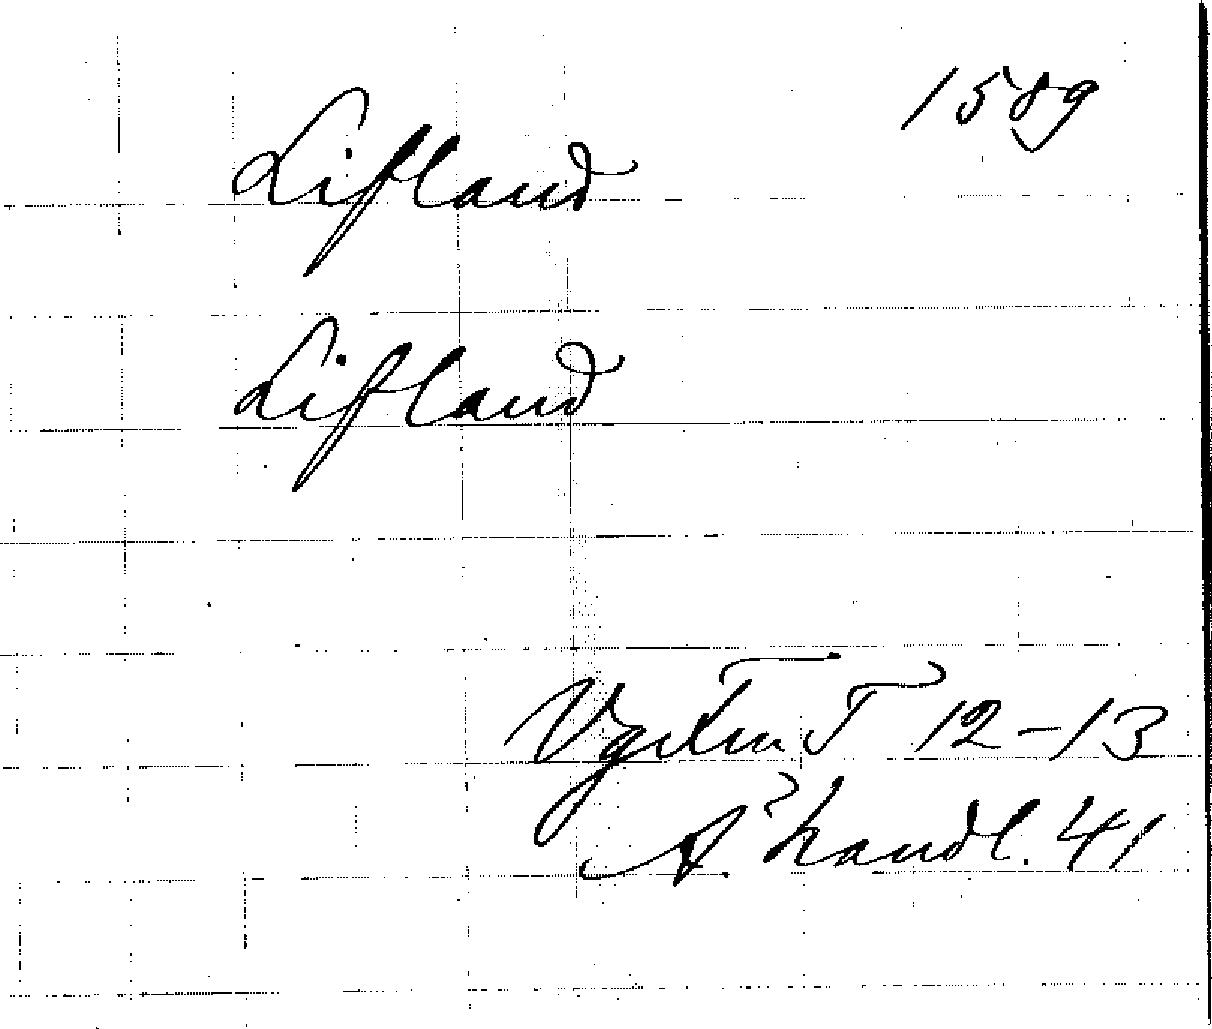 1589
Lifland
Lifland
Vgtln T 12-13
A. handl. 41